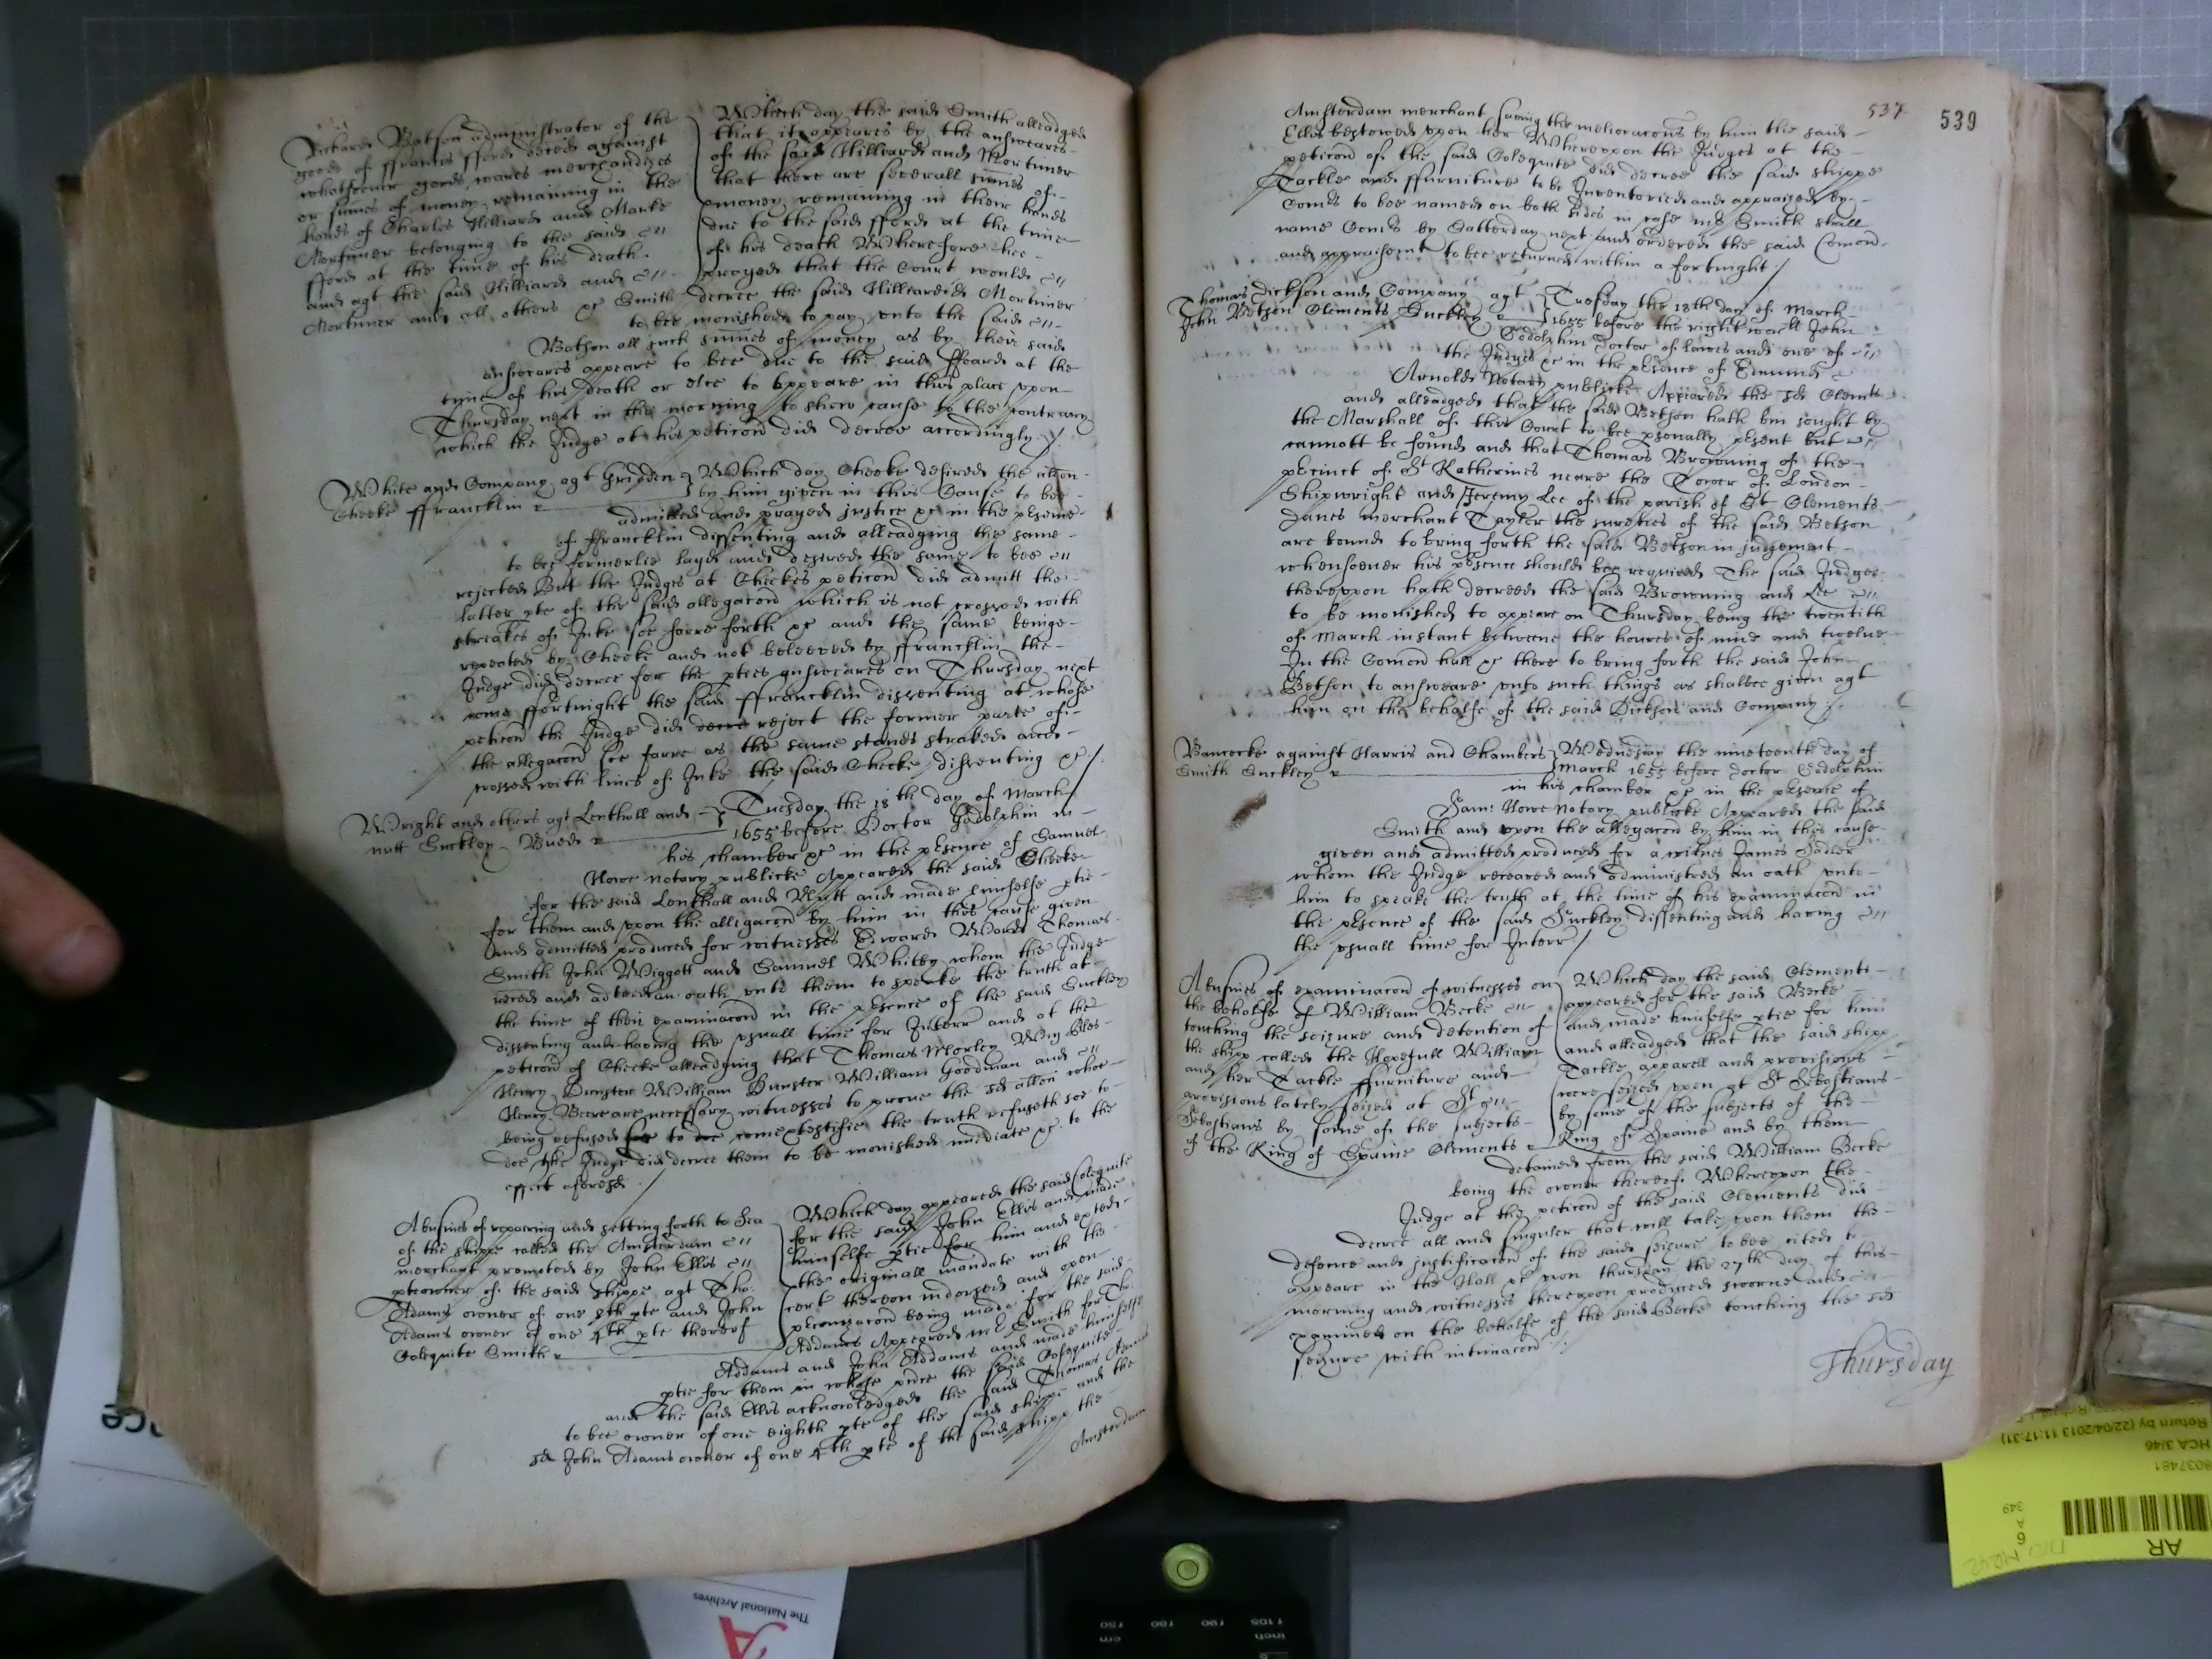 Richard Batson administrator of the
goods of ffrancis fford deced against
whatsoever goods wares merchandizes
or summes of money remaining in the
hands of Charles Hilliard and Marke
Mortimer belonging to the said
fford at the time of his death.
and agt the said Hilliard and
Mortimer and all others &c Smith
Which day the said Smith alleadged
that it appeares by the answeares
of the said Hilliard and Mortimer
that there are severall summes of
money remaining in their hands
due to the said fford at the time
of his death Wherefore hee
prayed that the Court would
decree the said Hilliard & Mortimer
to bee monished to pay unto the said
Batson all such summes of money as by their said
answeares appeare to bee due to the said fford at the
tyme of his death or else to appeare in this place upon
Thursday next in the morning to shew cause to the contrary
which the Judge at his peticon did decree accordingly./
White and Company agt Gridden
Cheeke ffrancklin
Which day Cheeke desired the allon
by him given in this Cause to bee
admitted and prayed justice &c in the psence
of ffrancklin dissenting and alleadging the same
to bee formerlie layd and desired the same to bee
rejected But the Judges at Cheekes peticon did admitt the
latter pte of the said allegacon which is not crossed with
streakes of Inke soe farre forth &c and the same beinge
repeated by Cheeke and not beleeved by ffrancklin the
Judge did decree for the pties answeares on Thursday next
come ffortnight the said ffrancklin dissenting at whose
peticon the Judge did reject the former parte of
the allegacon soe farre as the same stands straked and
crossed with lines of Inke the said Cheeke dissenting &c./
Wright and others agt Lentholl and
nutt Suckley Budd
Tuesday the 18th day of March
1655 before Doctor Godolphin in
his chamber &c in the psence of Samuel
Howe notary publicke Appeared the said Cheeke
for the said Lentholl and Nutt and made himselfe ptie
for them and upon the allegacon by him in this cause given
and admitted produced for witnesses Edward Ward Thomas
Smith John Wiggott and Samuel Whitby whom the Judge
reced and adtred an oath unto them to speake the truth at
the time of their examinacon in the psence of the said Suckley
dissenting and having the usuall time for Interr and at the
peticon of Cheeke alleadging that Thomas Morley
Henry Dunster William Dunster William Goodman and
Henry Beere are necessary witnesses to prove the sd allon whoe
being refused to come & testifie the truth refuseth soe to
doe the Judge did decree them to be monished imediate &c to the
effect aforesd./
A busines of repairing and setting forth to Sea
of the shippe called the Amsterdam
merchant promoted by John Ellis
pteowner of the said shippe agt Tho:
Adams owner of one 8th pte and John
Adams owner of one 4th pte thereof
Colequite Smith
Which day appeared the said Colequite
for the said John Ellis and made
himselfe ptie for him and exhibi-
the originall mandate with the
cert thereon indorsed and open
pconizacon being made for the said
Addams Appeared mr Smith for Tho
Addams and John Addams and made himselfe
ptie for them in whose pnce the said Colequite
and the said Ellis acknowledged the said Thomas Adams
to bee owner of one eighth pte of the said shipp and the
sd John Adams owner of one 4th pte of the said shipp the
Amsterdam
537
539
Amsterdam merchant saving the melioracons by him the said
Ellis bestowed upon her Whereupon the Judges at the
peticon of the said Colequite did decree the said shippe
Tackle and ffurniture to be Inventoried and appraised by
Coms to bee named on both sides in case mr Smith shall
name Coms by Satterday next and ordered the said Comon
and appraisemt to bee returned within a fortnight./
Thomas Dickson and Company agt
John Betson Clements Suckley
Tuesday the 18th day of March
1655 before the right worll John
Godolphin Doctor of lawes and one of
the Judges &c in the psence of Edmund
Arnold Notary publicke Appeared the sd Clemts
and alleadged that the said Betson hath bin sought by
the Marshall of this Court to bee psonally psent but
cannott be found and that Thomas Browning of the
pcinct of St Katherines neare the Tower of London
Shipwright and Jeremy Lee of the parish of St Clements
Danes merchant Taylor the sureties of the said Betson
are bound to bring forth the said Betson in judgement
whensoever his psence should bee required The said Judge
thereupon hath decreed the said Browning and Lee
to be monished to appeare on Thursday being the twentith
of March instant betweene the houres of nine and twelve
In the Comon hall &c there to bring forth the said John
Betson to answeare unto such things as shalbee given agt
him on the behalfe of the said Dickson and Company./
Bancocke against Harris and Chambers
Smith Suckley
Wednesday the nineteenth day of
March 1655 before Doctor Godolphin
in his chamber &c in the psence of
Sam: Howe Notary publicke Appeared the said
Smith and upon the allegacon by him in this cause
given and admitted produced for a witnes James Sadler
whom the Judge receaved and administred an oath unto
him to speake the truth at the time of his examinacon in
the psence of the said Suckley dissenting and having
the usuall time for Interr./
A busines of examinacon of witnesses on
the behalfe of William Becke
touching the seizure and detention of
the shipp called the Hopefull William
and her Tackle ffurniture and
provisions lately seized at St
Sebastians by some of the subjects
of the King of Spaine Clements
Which day the said Clements
appeared for the said Becke
and made himselfe ptie for him
and alleadged that the said shipp
Tackle apparell and provisions
were seized upon at St Sebastians
by some of the subjects of the
King of Spaine and by them
detained from the said William Becke
being the owner thereof Whereupon the
Judge at the peticon of the said Clements did
decree all and singuler that will take upon them the
defence and justificacon of the said seizure to bee cited to
appeare in the Hall &c upon thursday the 27th day of this
morning and witnesses thereupon produced sworne and
examined on the behalfe of the said Becke touching the sd
seizure with intimacon./
Thursday
The National Archives
AR
8037481
HCA 3/46
Return by (22/04/2013 11:17:31)
349